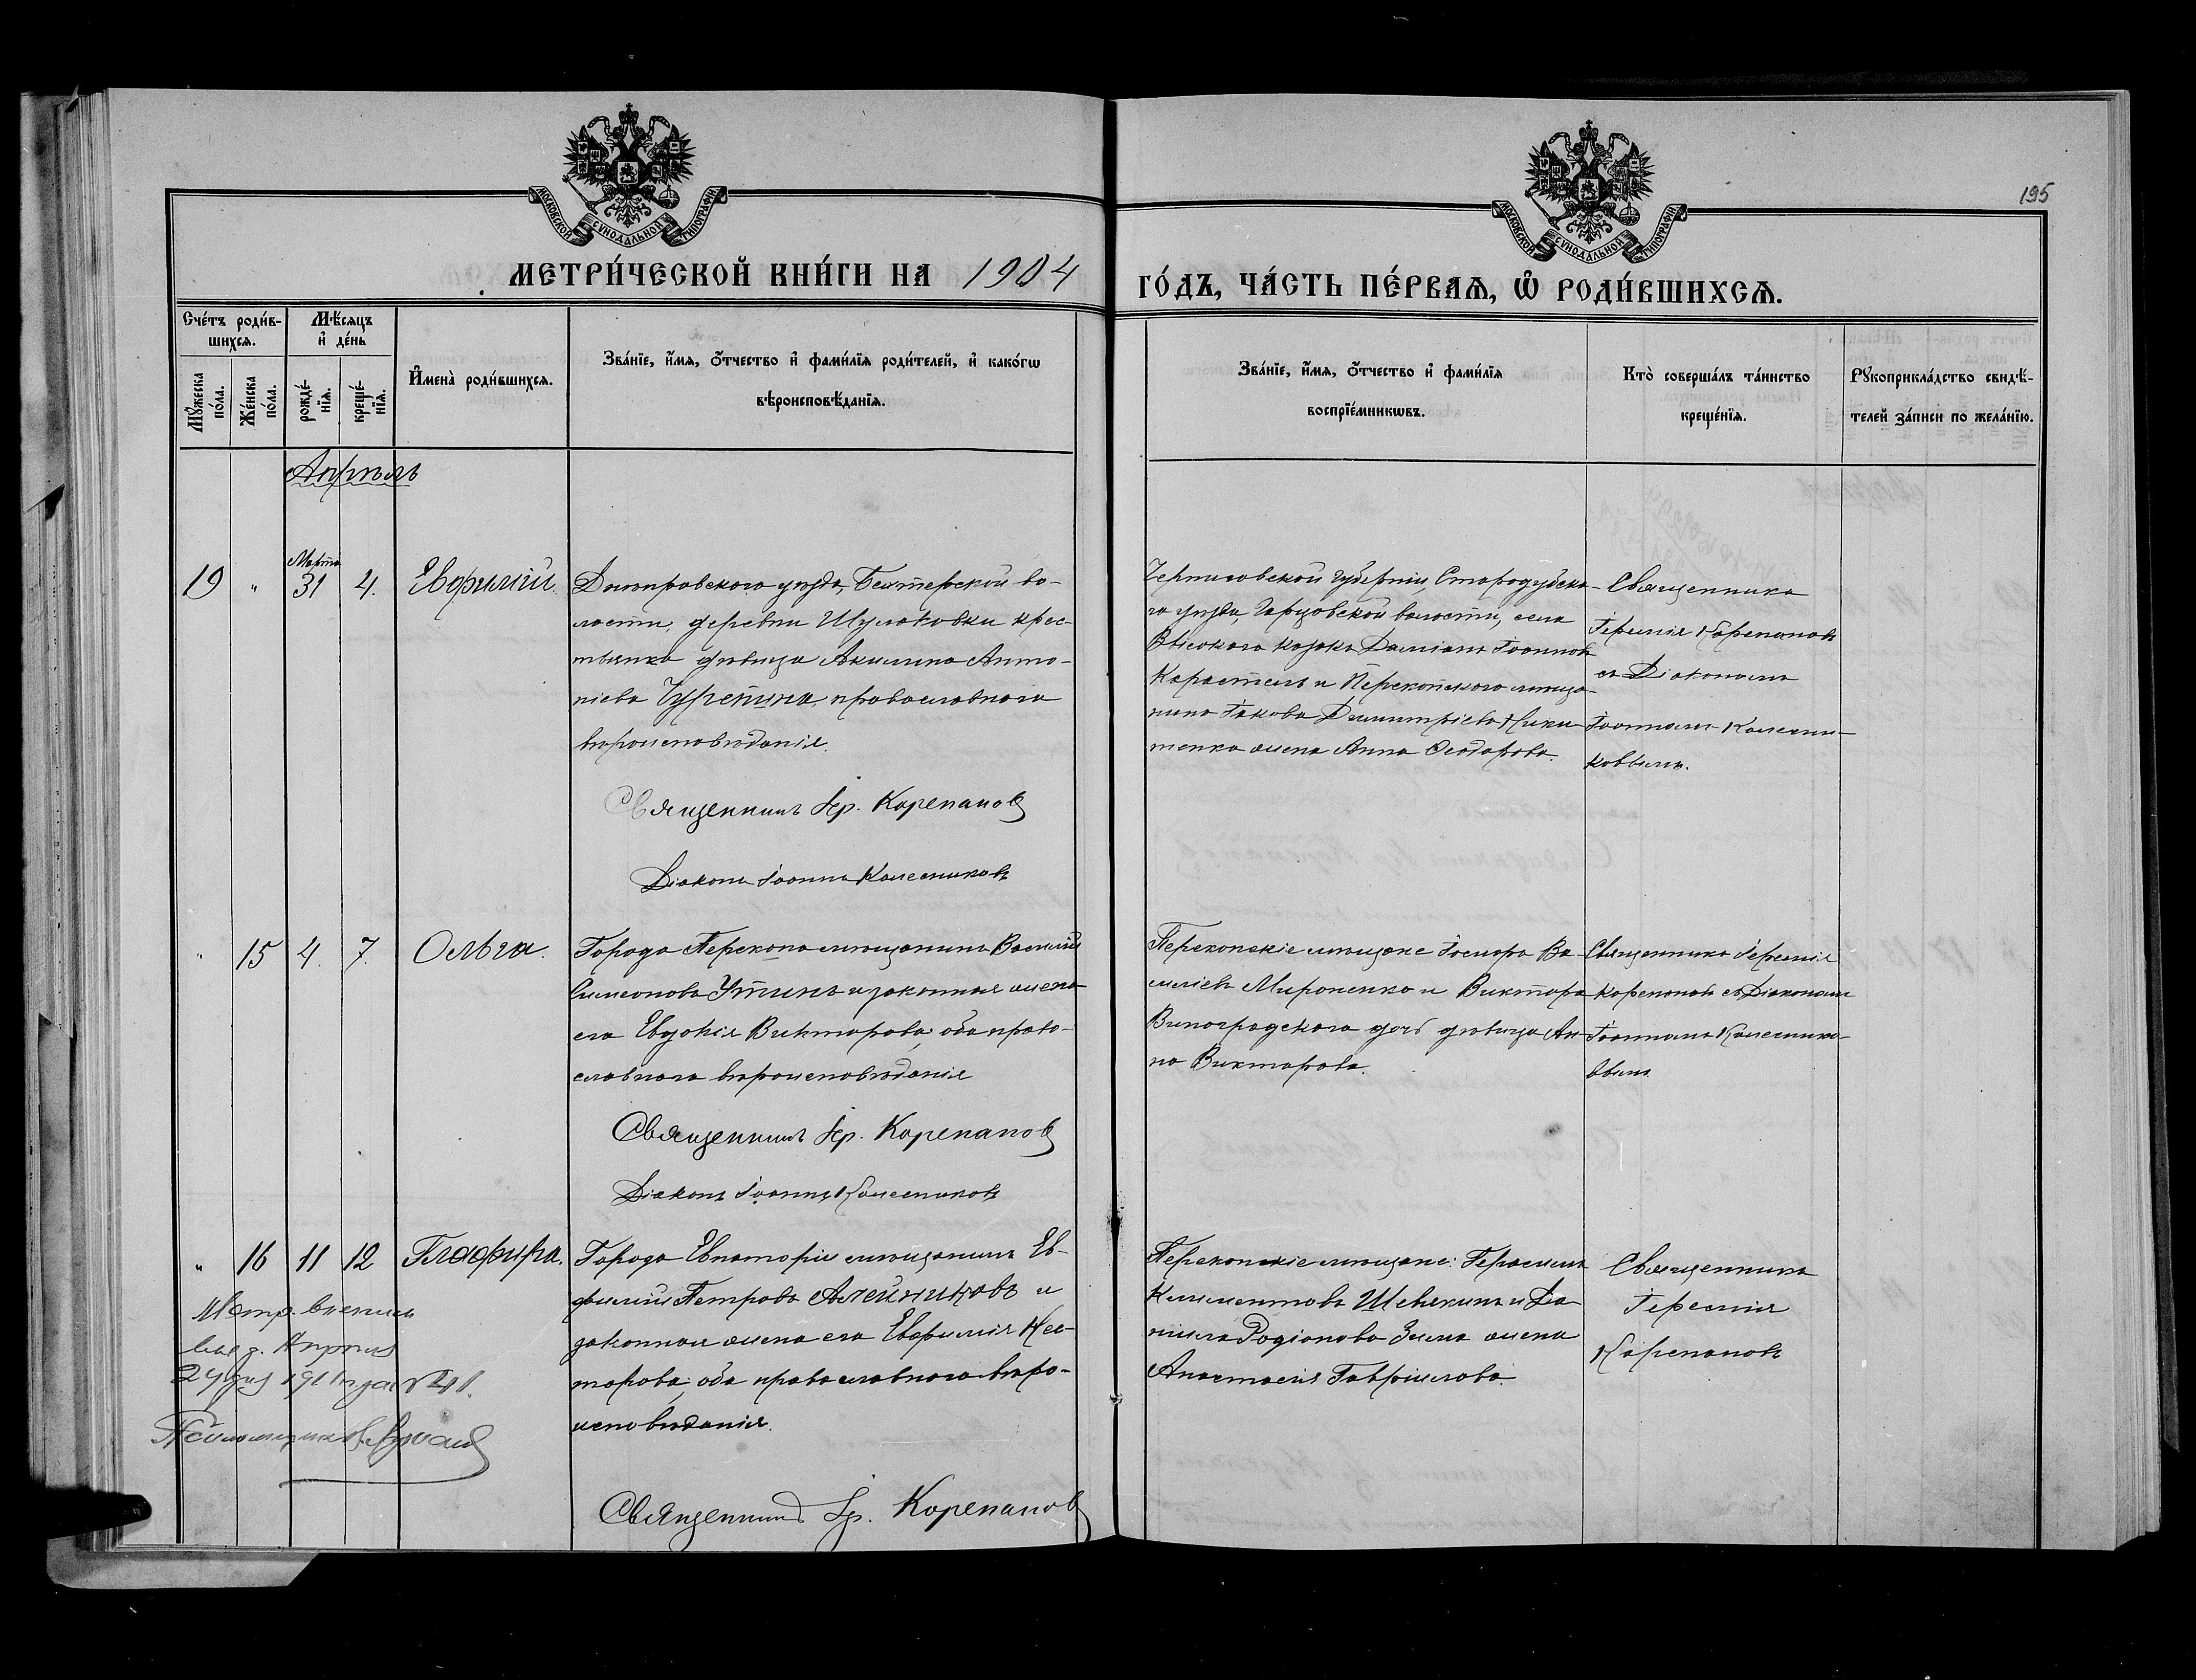 195
МОСКОВСКОЙ СѴНОДАЛЬНОЙ ТИПОГРАФІИ
МОСКОВСКОЙ СѴНОДАЛЬНОЙ ТИПОГРАФІИ
МЕТРИ́ЧЕСКОЙ КНИ́ГИ НА 1904
ГО́ДЪ, ЧА́СТЬ ПЕ́РВАѦ, Ѡ҆ РОДИ́ВШИХСѦ.
Сче́тъ роди́в-
шихсѧ.
Мꙋ́жеска по́ла.
Же́нска по́ла.
Мѣ́сѧцъ
и҆ де́нь
рожде́-
нїѧ.
креще́-
нїѧ.
И҆мена̀ роди́вшихсѧ.
Зва́нїе, и҆́мѧ, ѻ҆́тчество и҆ фами́лїѧ роди́телей, и҆ како́гѡ
вѣроисповѣ́данїѧ.
Зва́нїе, и҆́мѧ, ѻ҆́тчество и҆ фами́лїѧ
воспрїе́мникѡвъ.
Кто̀ соверша́лъ та́инство
креще́нїѧ.
Рꙋкоприкла́дство свидѣ́-
телей за́писи по жела́нїю.
Апрѣль
19 " Марта 31 4. Евфимій.
Днѣпровскаго уѣзда, Бехтерской во-
лости, деревни Шулаковки крес-
тьянка дѣвица Акилина Анто-
ніева Чурепина, православнаго
вѣроисповѣданія.
Священникъ Іер. Корепановъ
Діаконъ Іоаннъ Колесниковъ
Черниговской губерніи, Стародубска-
го уѣзда, Гарцовской волости, села
Высокаго козакъ Даміанъ Іоанновъ
Коростель и Перекопскаго мѣща-
нина Іакова Димитріева Ники-
тенка жена Анна Ѳеодорова.
Священникъ
Іеремія Корепановъ
съ Діакономъ
Іоанномъ Колесни-
ковымъ.
" 15 4. 7. Ольга.
Города Перекопа мѣщанинъ Василій
Симеоновъ Утинъ и законная жена
его Евдокія Викторова, оба право-
славнаго вѣроисповѣданія
Священникъ Іер. Корепановъ
Діаконъ Іоаннъ Колесниковъ
Перекопскіе мѣщане Іосифъ Ва-
силіевъ Мироненко и Виктора
Виноградскаго дочь дѣвица Ан-
на Викторова.
Священникъ Іеремія
Корепановъ съ Діакономъ
Іоанномъ Колеснико-
вымъ
" 16 11 12 Глафира.
Города Евпаторіи мѣщанинъ Ев-
фимій Петровъ Алейниковъ и
законная жена его Евфимія Нес-
торова, оба православнаго вѣро-
исповѣданія.
Священникъ Іер. Корепановъ
Перекопскіе мѣщане: Герасимъ
Климентовъ Шевякинъ и Да-
ніила Родіонова Зима жена
Анастасія Гавріилова.
Священникъ
Іеремія
Корепановъ
Метр. выпись
выд. Апрѣля
24 дня 1911 года № 41.
Псаломщикъ